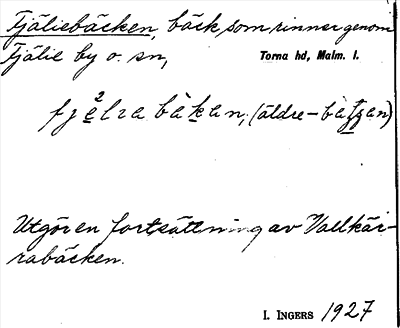 Fjäliebäcken, bäck, som rinner genom
Fjälie by o. sn, Torna hd, Malm. l.
(äldre
Utgör en fortsättning av Vallkär-
rabäcken.
I. INGERS 1927